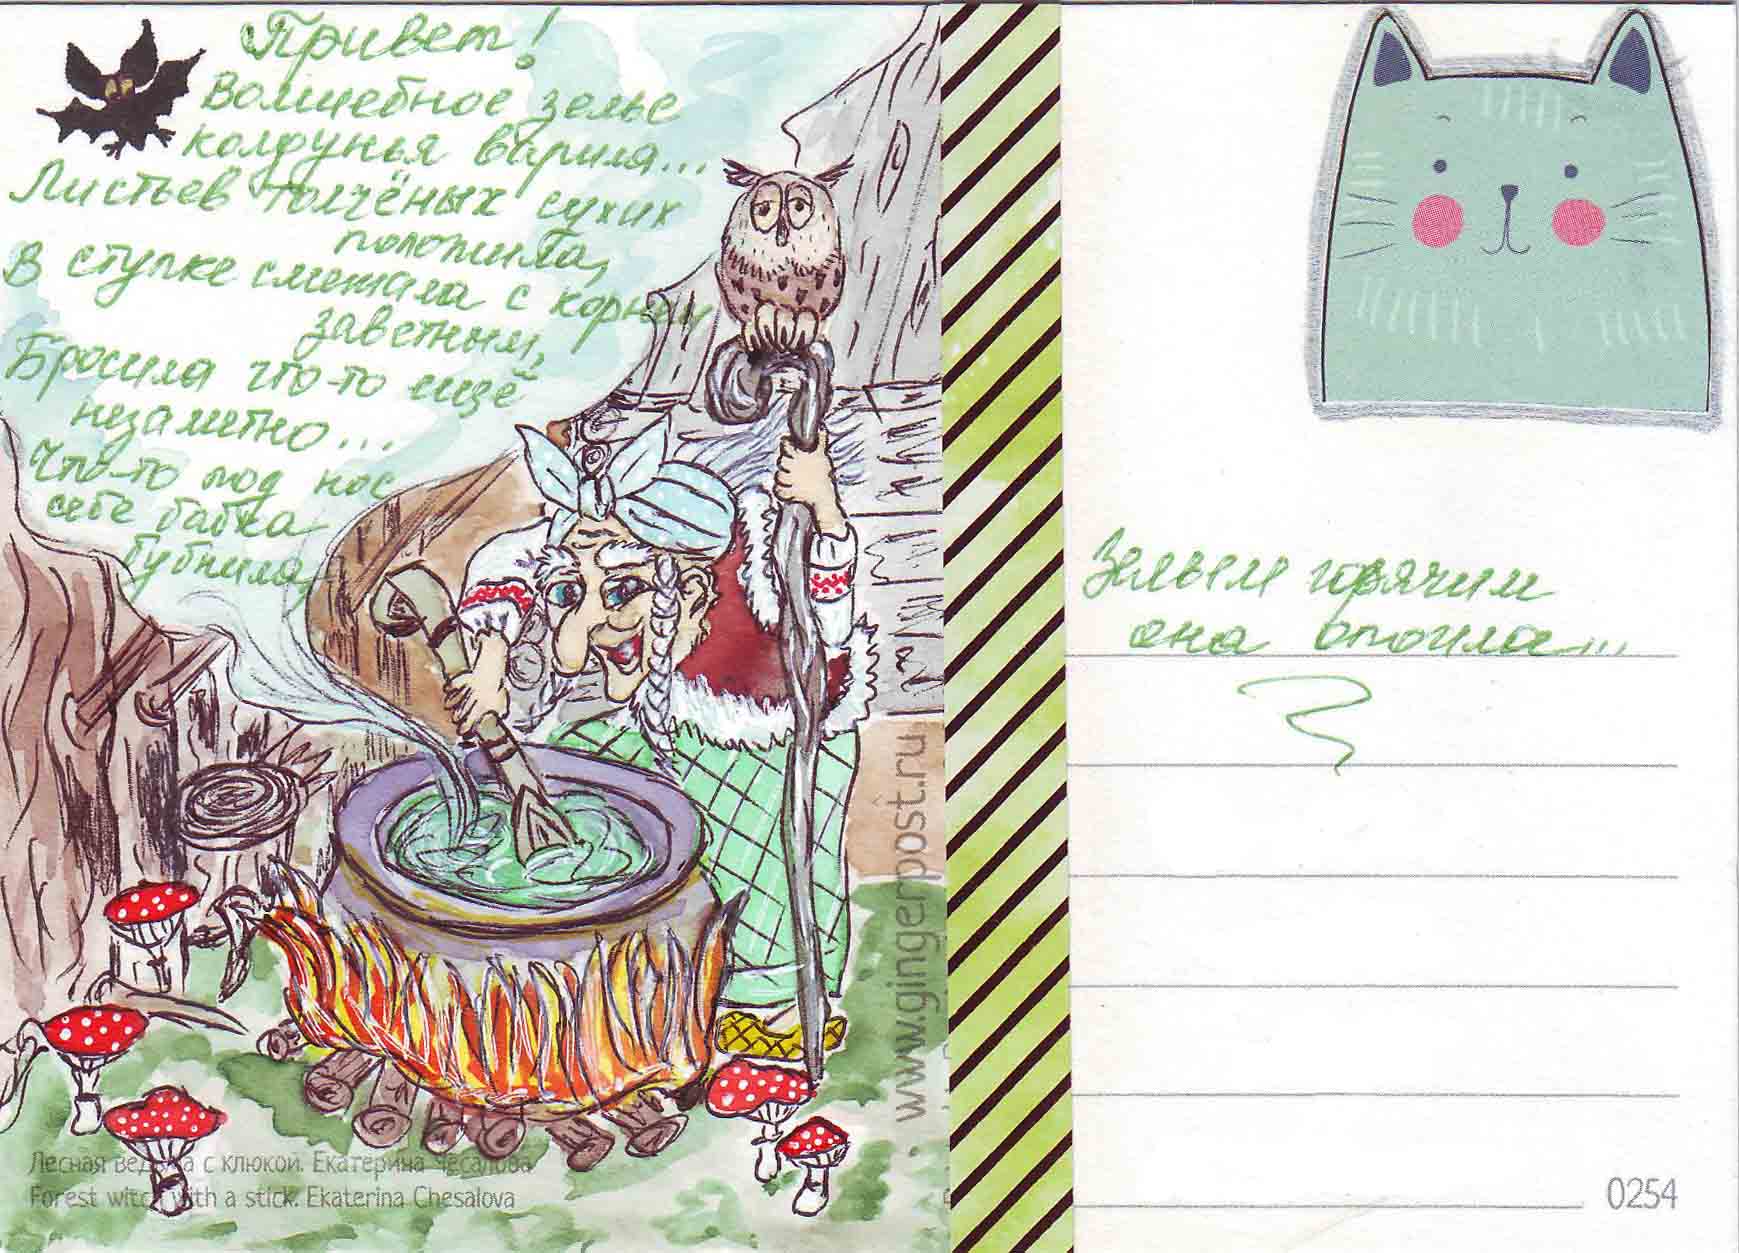 Привет!
Волшебное зелье
колдунья варила...
Листьев толчёных сухих
положила,
В ступке смешала с корнем
заветным,
Бросила что-то ещё
незаметно...
Что-то под нос
себе бабка
бубнила,
Зельем горячим
она опоила...
www.gingerpost.ru
Лесная ведьма с клюкой. Екатерина Чесалова
Forest witch with a stick. Ekaterina Chesalova
0254